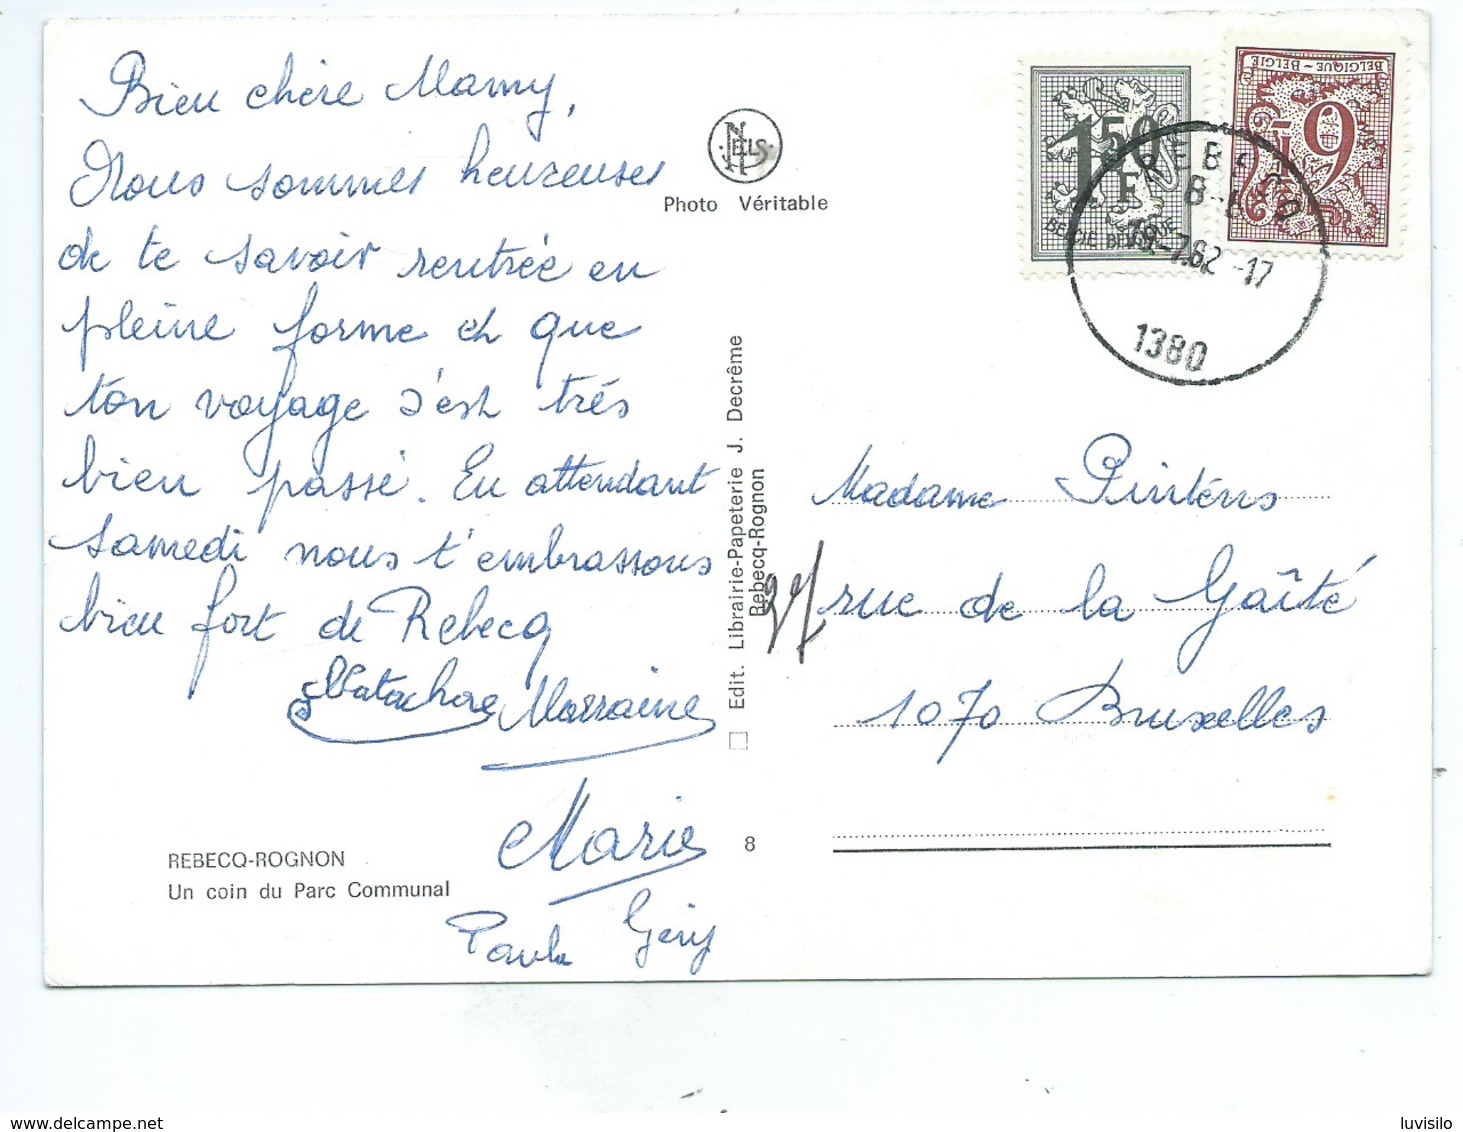 Bien chère Mamy,
Nous sommes heureuses
de te savoir rentrée en
pleine forme et que
ton voyage s'est très
bien passé. En attendant
samedi nous t'embrassons
bien fort de Rebecq
Natacha Lorraine
Marie
Paula Géry
REBECQ-ROGNON
Un coin du Parc Communal
NELS
Photo Véritable
Edit. Librairie-Papeterie J. Decrême
Rebecq-Rognon
8
1F50
BELGIE-BELGIQUE
BELGIQUE-BELGIË
6F
REBECQ
B-B
-7.82 -17
1380
Madame Pintens
27 rue de la Gaîté
1070 Bruxelles
luvisilo